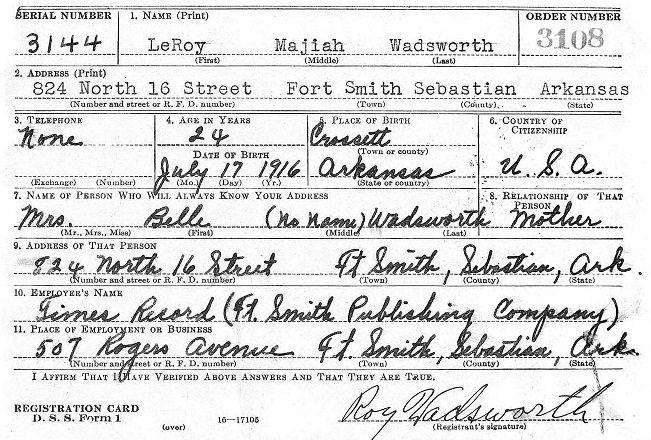 SERIAL NUMBER 1. NAME (Print) ORDER NUMBER
3144 LeRoy Majiah Wadsworth 3108
(First) (Middle) (Last)
2. ADDRESS (Print)
824 North 16 Street Fort Smith Sebastian Arkansas
(Number and street or R. F. D. number) (Town) (County) (State)
3. TELEPHONE 4. AGE IN YEARS 5. PLACE OF BIRTH 6. COUNTRY OF CITIZENSHIP
None 24 Crossett
(Town or county)
DATE OF BIRTH
July 17 1916 Arkansas U. S. A.
(Exchange) (Number) (Mo.) (Day) (Yr.) (State or country)
7. NAME OF PERSON WHO WILL ALWAYS KNOW YOUR ADDRESS 8. RELATIONSHIP OF THAT PERSON
Mrs. Belle (No Name) Wadsworth Mother
(Mr., Mrs., Miss) (First) (Middle) (Last)
9. ADDRESS OF THAT PERSON
824 North 16 Street Ft Smith, Sebastian, Ark.
(Number and street or R. F. D. number) (Town) (County) (State)
10. EMPLOYER'S NAME
Times Record (Ft. Smith Publishing Company)
11. PLACE OF EMPLOYMENT OR BUSINESS
507 Rogers Avenue Ft. Smith, Sebastian, Ark.
(Number and street or R. F. D. number) (Town) (County) (State)
I AFFIRM THAT I HAVE VERIFIED ABOVE ANSWERS AND THAT THEY ARE TRUE.
REGISTRATION CARD
D. S. S. Form 1 16—17105 Roy Wadsworth
(over) (Registrant's signature)